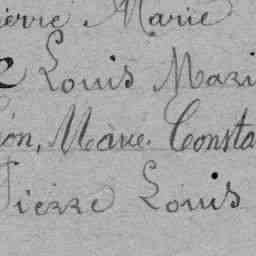 ierre Marie
Louis Mari
on, Marie Consta
Pierre Louis